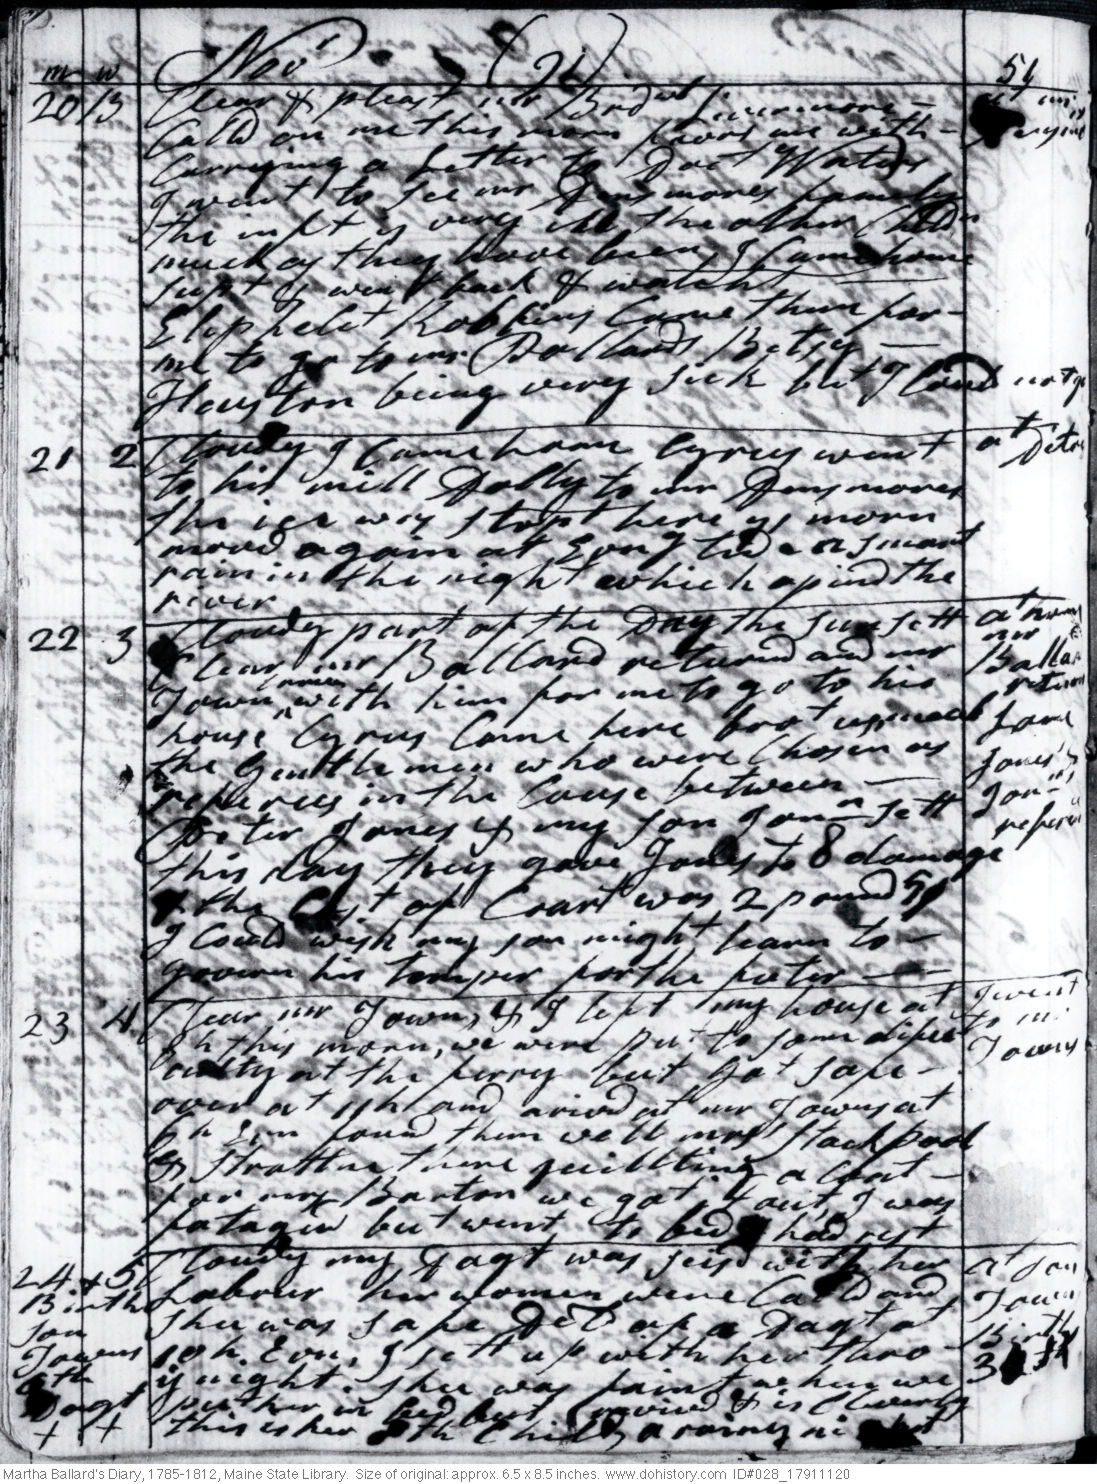 m w Nov (91) 51
20 1/3 Clear & pleast mr Brd Livermore -
Calld on me this morn favord me with -
Carrying a Letter to Doct Waters
I went to see mr Densmores family
the inft is very ill the other Childn
much as they have been, I Came home
Supt & went back & watcht
Eliphelet Robbins Came thear for -
me to go to mr Pollards Betsey
Houston being very sick but I Coud not go
21 2 Cloudy I Came home Cyrus went at
to his mill Dolly to mr Densmores
the ice was stopt here ys morn
movd again at Evng had a smart
rain in the night which opind the
river
22 3 Cloudy part of the Day the sun sett at home
Clear mr Ballard returnd and mr
mr Ballard returnd
Town came with him for me to go to his
house Cyrus Came here brot up meal
the gentlemen who were Chosen as
referees in the Cause between
Peter Jones & my son Jonan sett
this day they gave Jones to 8 damage
& the Cost of Coart was 2 pound
I Could wish my son might learn to -
govern his temper for the futer
23 4 Clear mr Town & I left my house at I went
h this morn, we were put to some diffi to mr
culty at the ferry but got safe - Towns
over at 11 h and arivd at mr Towns at
h Evn found them well mrs Stackpool
& Stratten there quillting a Coat -
for mrs Barton we got it out I was
fatagud but went to bed & had rest
24 + 5 Cloudy my Dagt was seisd with her at Jon
Birth Labour her women were Calld and Towns
Jon She was safe Deld of a Dagt at Birth
Towns 10 h Evn, I sett up with her thro -
6th ys night. She was faint when we
Dagt put her in bed but revived & is Cleverly
+ + this is her 6th Child, a rainy night
Martha Ballard's Diary, 1785-1812, Maine State Library. Size of original: approx. 6.5 x 8.5 inches. www.dohistory.com ID#028_17911120